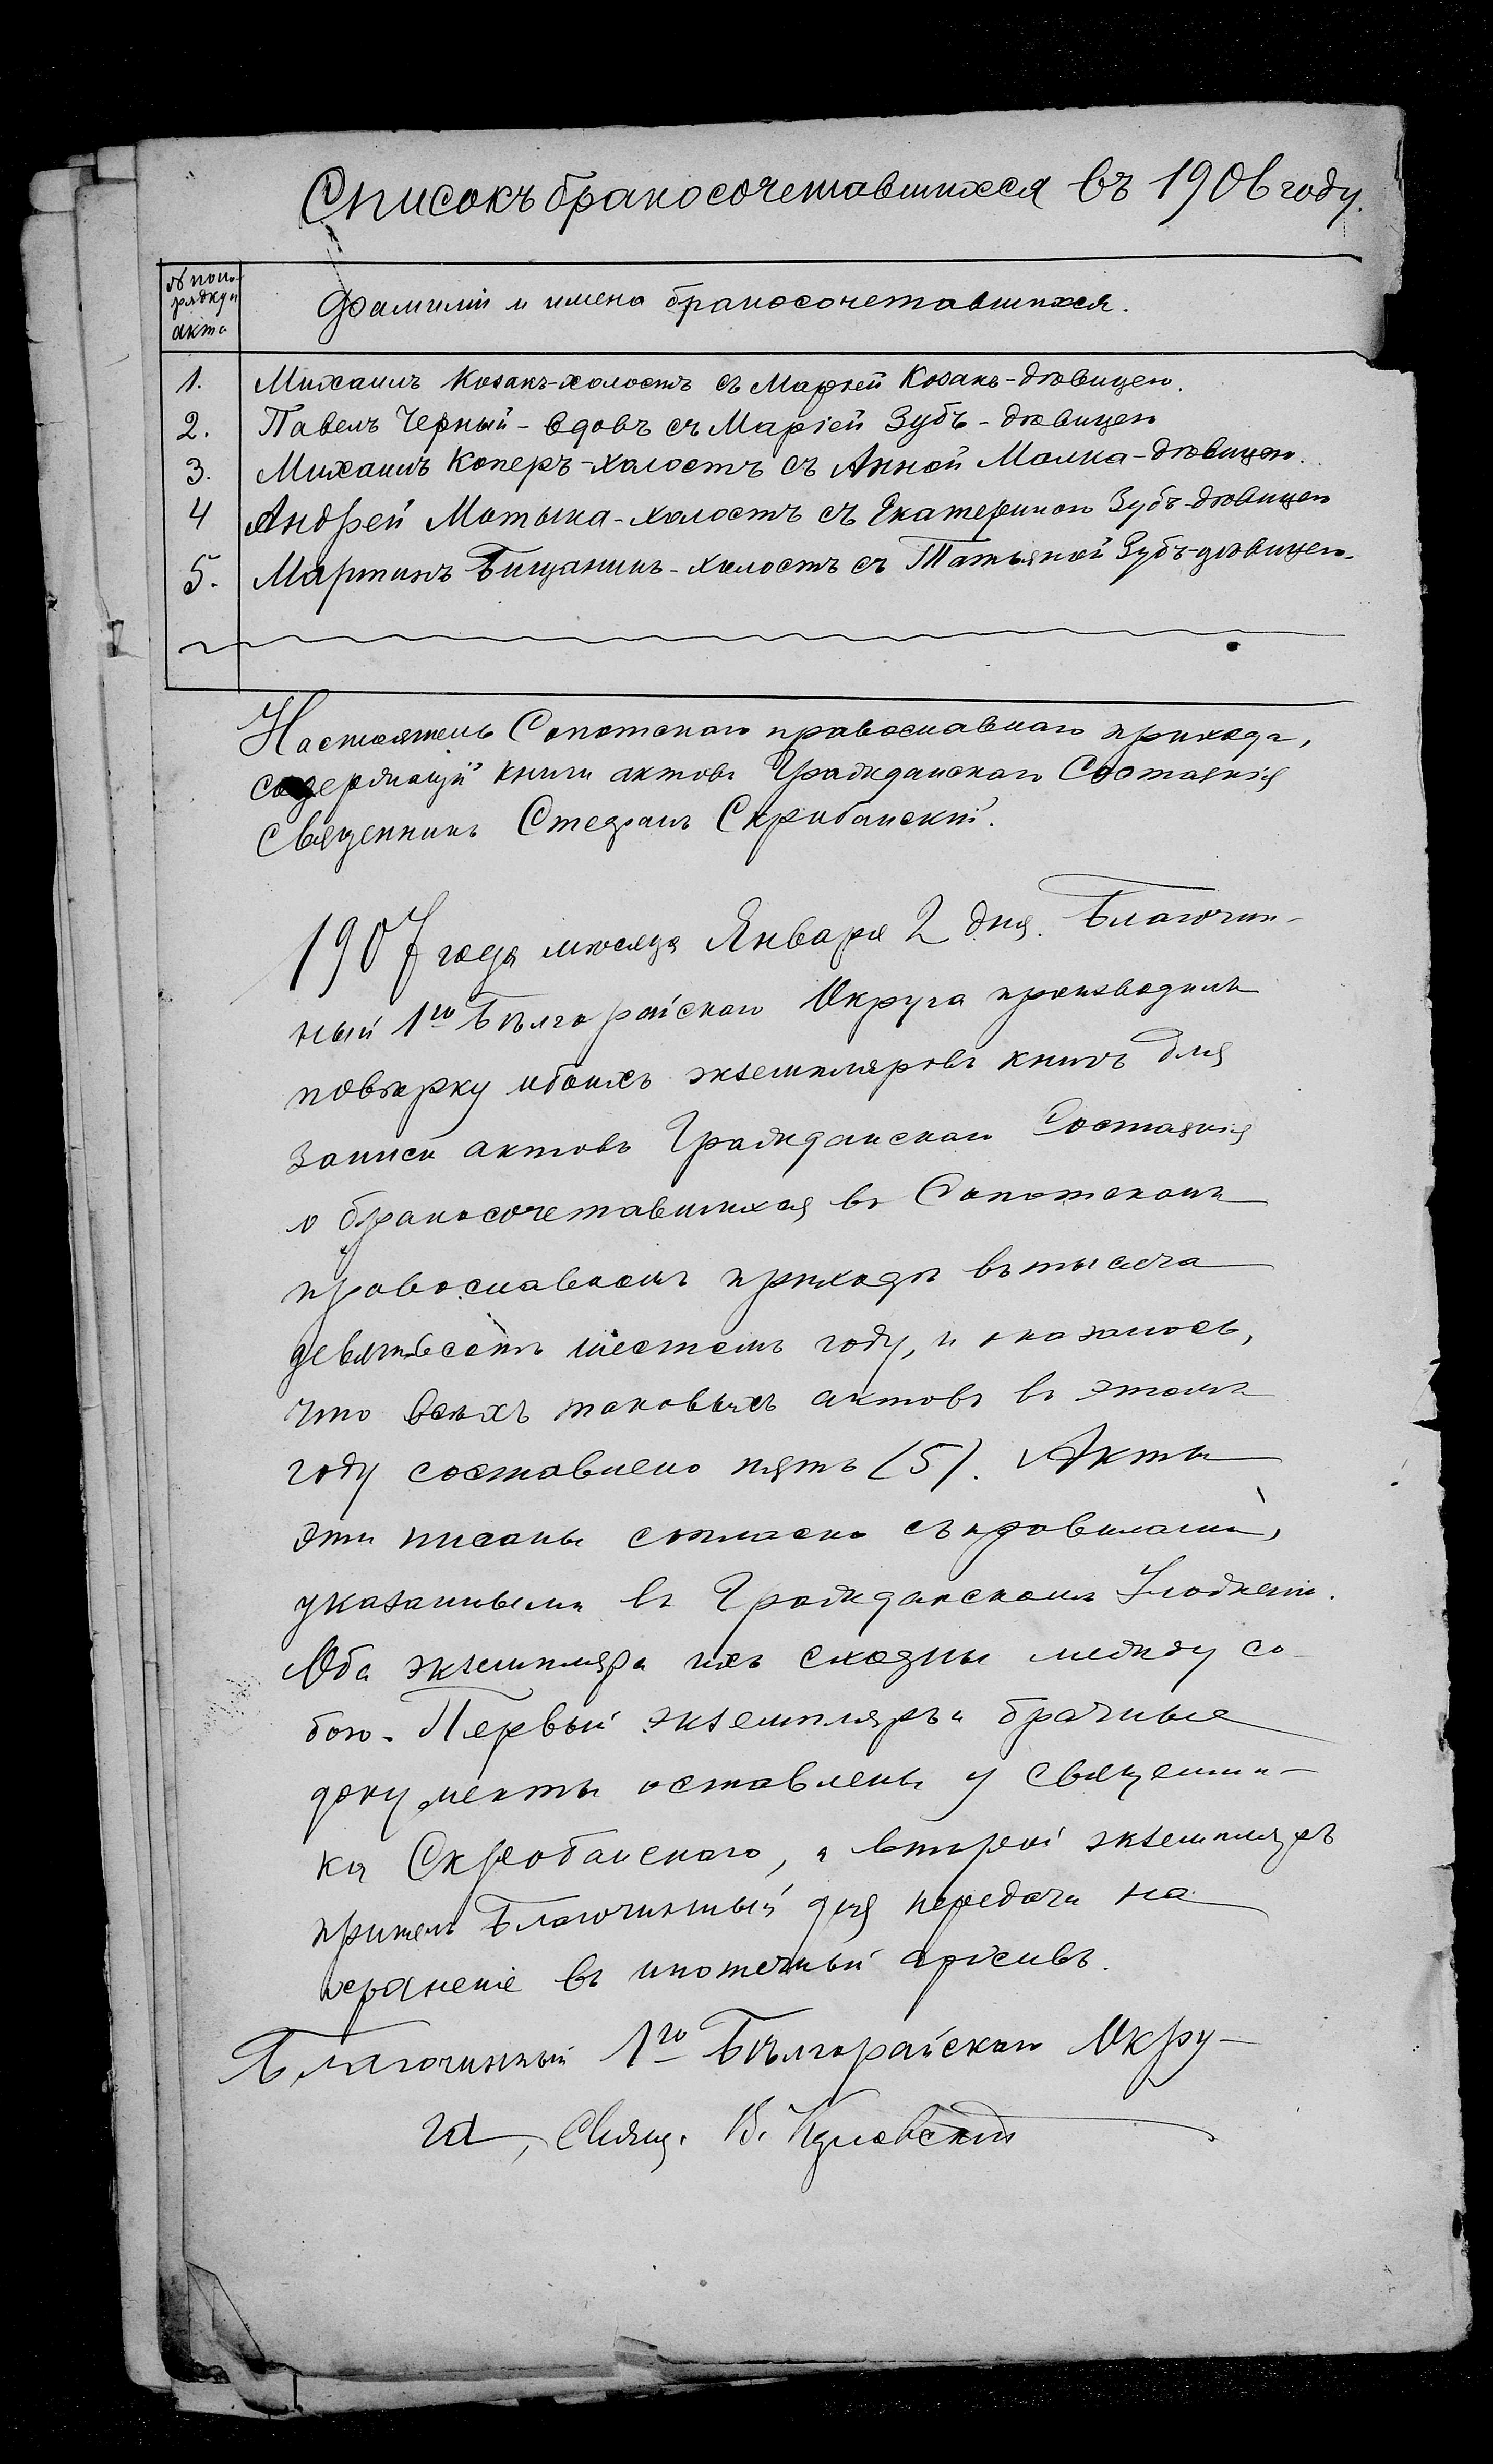 Списокъ бракосочетавшихся въ 1906 году.
№ по по-
рядку и
акта
Фамилiи и имена бракосочетавшихся.
1. Михаилъ Козакъ-холостъ съ Марiей Козакъ-дѣвицею.
2. Павелъ Черный-вдовъ съ Марiей Зубъ-дѣвицею
3. Михаилъ Коперъ-холостъ съ Анной Малка-дѣвицею.
4 Андрей Мотыка-холостъ съ Екатериною Зубъ-дѣвицею
5. Мартинъ Бищанинъ-холостъ съ Татьяной Зубъ-дѣвицею.
Настоятель Сопотскаго православнаго прихода,
содержащiй книги актовъ Гражданскаго Состоянiя
Священникъ Стефанъ Скрибанскiй.
1907 года мѣсяца Января 2 дня. Благочин-
ный 1го Бѣлгорайскаго Округа производилъ
повѣрку обоихъ экземпляровъ книгъ для
записи актовъ Гражданскаго Состоянiя
о бракосочетавшихся въ Сопотскомъ
православномъ приходѣ въ тысяча
девятьсотъ шестомъ году, и оказалось,
что всѣхъ таковыхъ актовъ въ этомъ
году составлено пять (5). Акты
эти писаны согласно съ правилами,
указанными въ Гражданскомъ Уложенiи.
Оба экземпляра ихъ сходны между со-
бою. Первый экземпляръ и брачные
документы оставлены у священни-
ка Скробанскаго, а второй экземпляръ
принялъ Благочинный для передачи на
храненiе въ ипотечный архивъ.
Благочинный 1го Бѣлгорайскаго Окру-
га, Свящ. В.